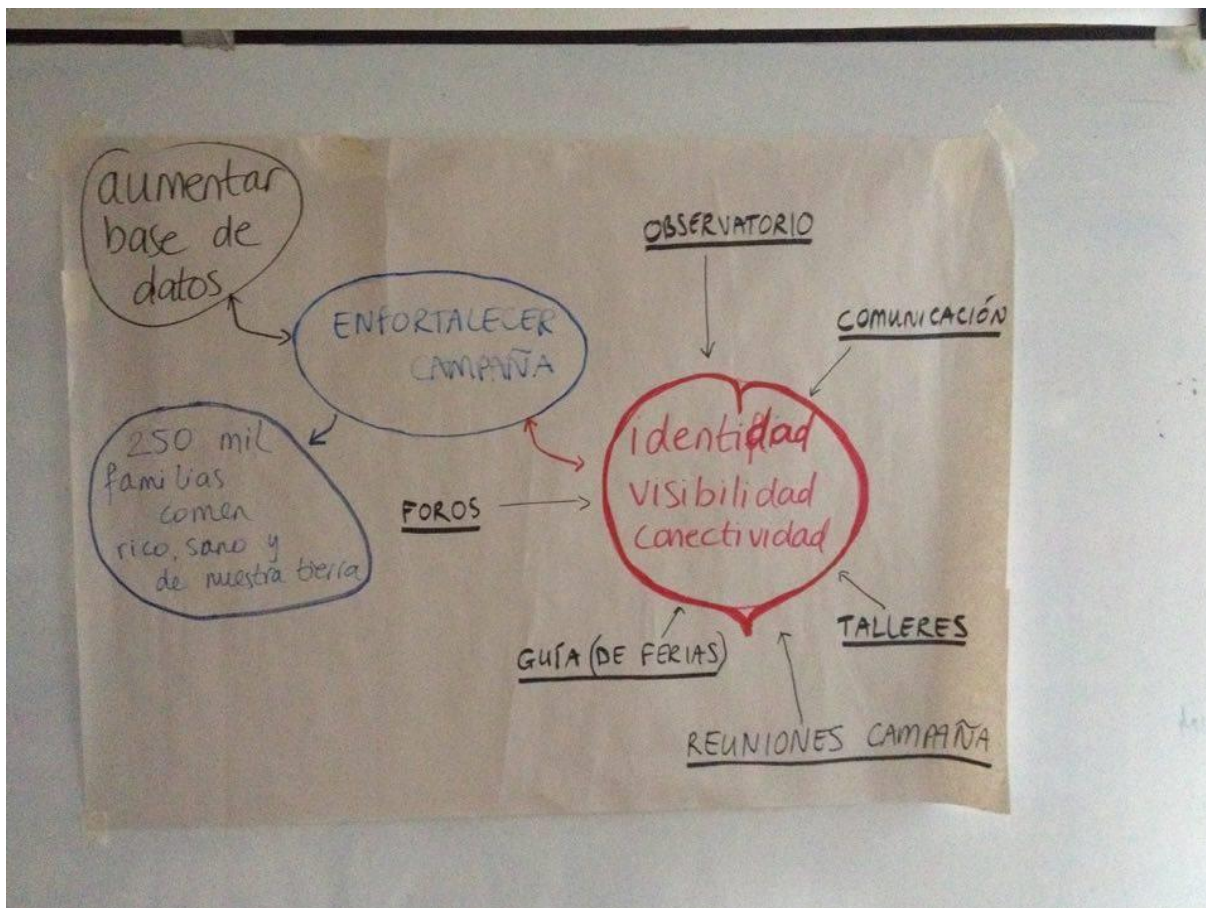 aumentar
base de
datos
ENFORTALECER
CAMPAÑA
250 mil
familias
comen
rico, sano y
de nuestra tierra
OBSERVATORIO
COMUNICACIÓN
identidad
visibilidad
conectividad
FOROS
TALLERES
GUÍA (DE FERIAS)
REUNIONES CAMPAÑA